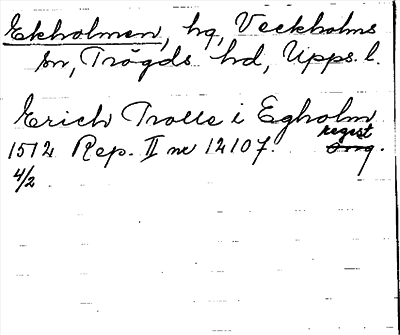 Ekholmen, hg, Veckholms
sn, Trögds hd, Upps. l.
Erich Trolle i Egholm
1512 Rep. II nr 12107. regist
4/2